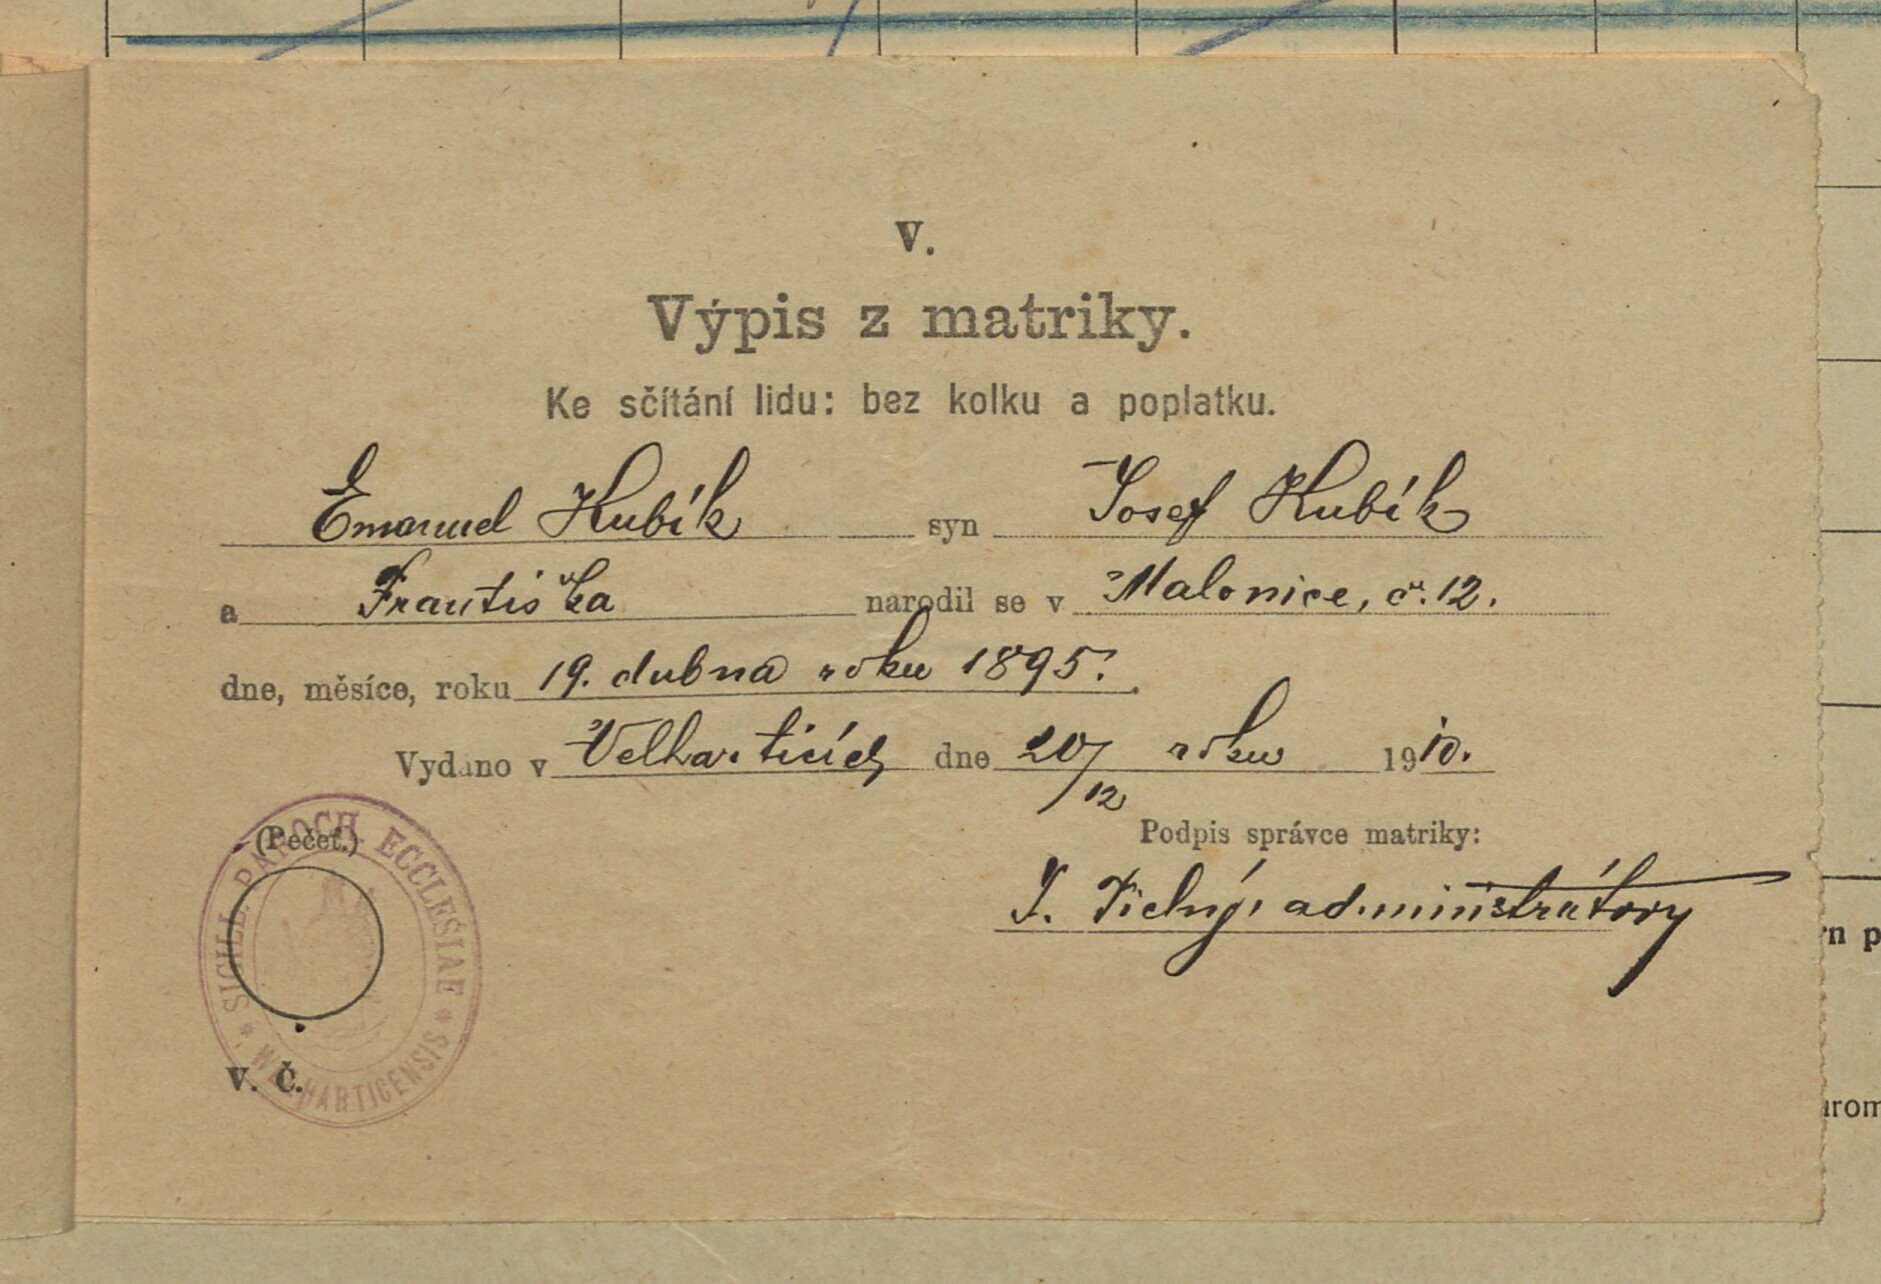 V.
Výpis z matriky.
Ke sčítání lidu: bez kolku a poplatku.
Emanuel Kubík syn Josef Kubík
a Františka narodil se v Malonice, č. 12.
dne, měsíce, roku 19. dubna roku 1895.
Vydáno v Velharticích dne 20/12 roku 1910.
(Pečeť.)
Podpis správce matriky:
J. Tichý, administrátory
SIGILL. PAROCH. ECCLESIAE
* WELHARTICENSIS *
V. Č.